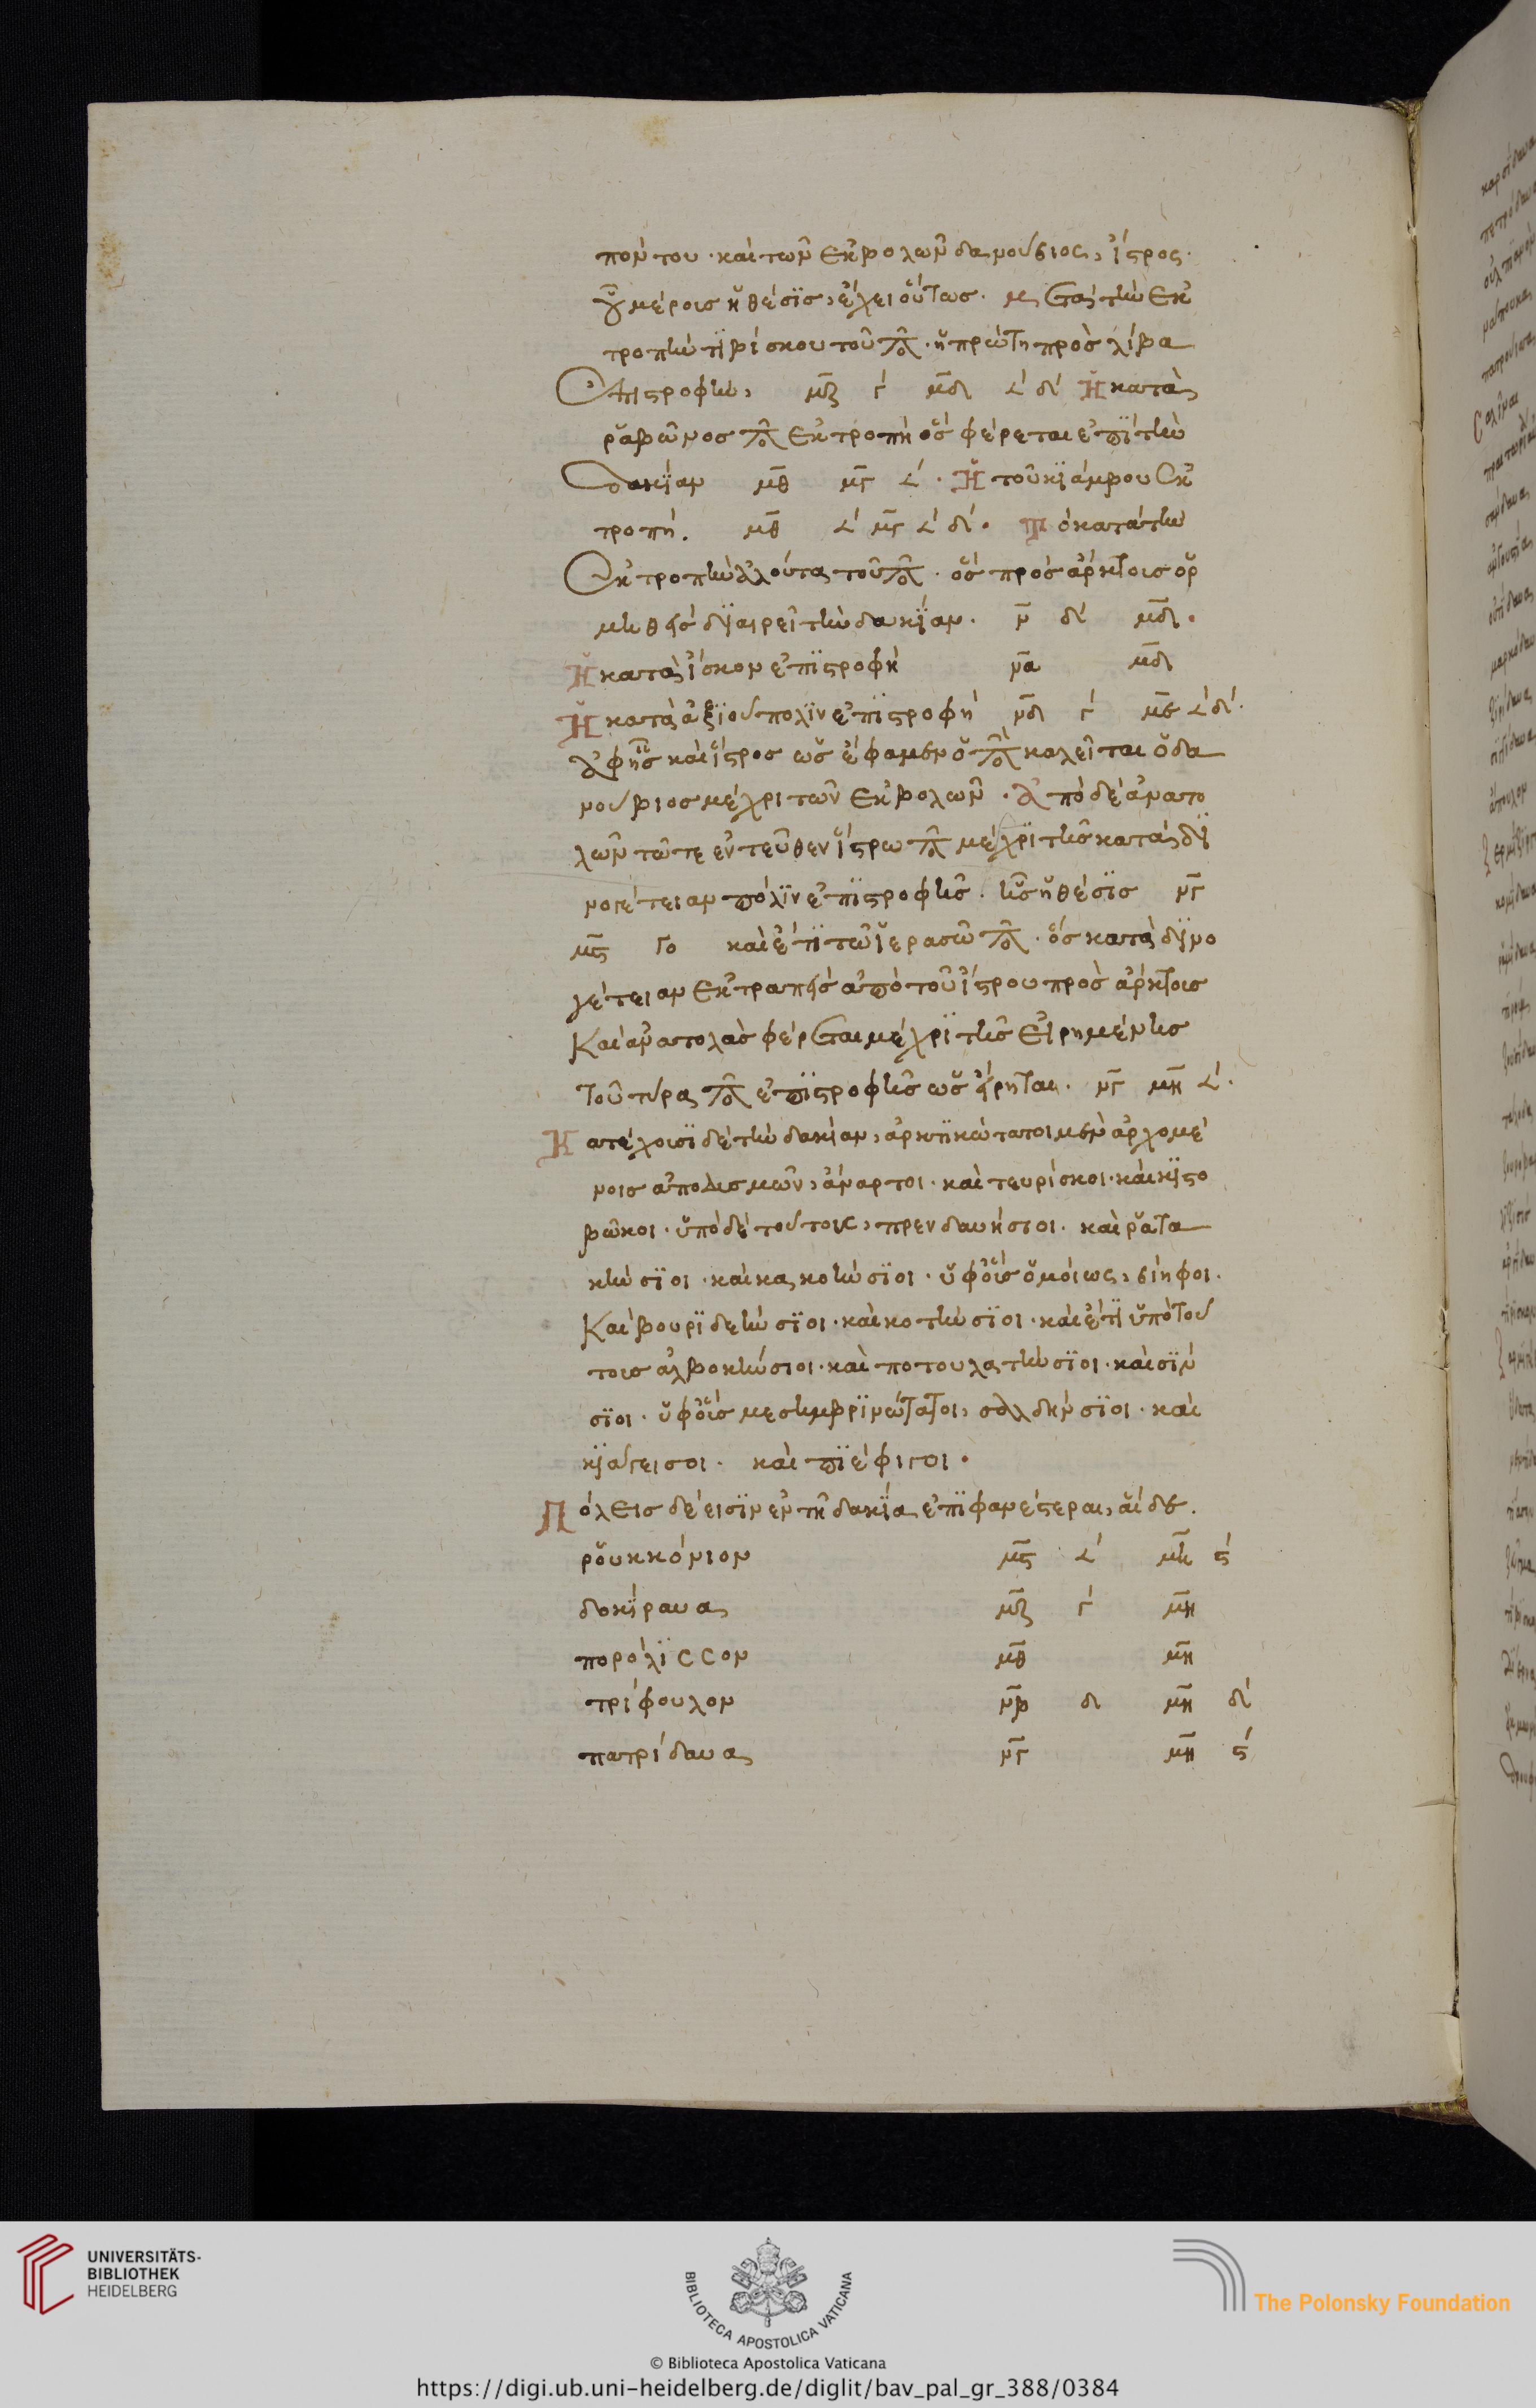 πόντου· καὶ τῶν ἐκβολῶν δανούβιος, ἴστρος·
οὗ μέροις ἡ θέσϊς, ἔχει οὕτως· μετὰ τὴν ἐκ
τροπὴν τϊβίσκου τοῦ ποταμοῦ· ἡ πρώτη πρὸς λίβα
ἐπιστροφὴν, μζ γ μδ 𐅵 δ Ἡ κατὰ
ῥάβωνος ποταμοῦ ἐκτροπὴ ὃς φέρεται ἐπϊ τὴν
δακΐαν μθ μγ 𐅵· Ἡ τοῦ κϊάμβρου ἐκ
τροπή. μθ 𐅵 μγ 𐅵 δ·
ἐκτροπὴν ἀλούτα τοῦ ποταμοῦ· ὃς πρὸς ἄρκτοις ὁρ
μηθεὶς δϊαιρεῖ τὴν δακΐαν· ν δ μδ·
Ἡ κατὰ ἴσκον ἐπϊστροφὴ να μδ
Ἡ κατὰ ἀξϊούπολϊν ἐπϊστροφὴ νδ γ με 𐅵 δ·
ἀφ' ἧς καὶ ἴστρος ὡς ἔφαμεν ὁ ποταμὸς καλεῖται ὁ δα
νούβιος μέχρι τῶν ἐκβολῶν· ἀπὸ δὲ ἀνατο
λῶν τῶτε ἐντεῦθεν ἴστρω ποταμῷ μέχρϊ τῆς κατὰ δϊ
νογέτειαν πόλϊν ἐπϊστροφῆς· ἧς ἡ θέσϊς νγ
μς γο καὶ ἔτϊ τῶ ϊερασῶ ποταμῷ· ὃς κατὰ δϊνο
γέτειαν ἐκτραπεὶς ἀπὸ τοῦ ἴστρου πρὸς ἄρκτοις
Καὶ ἀνατολὰς φέρεται μέχρϊ τῆς εἰρημένης
τοῦ τύρα ποταμοῦ ἐπϊστροφῆς ὡς εἴρηται· νγ μη 𐅵·
Κατέχοισϊ δὲ τὴν δακίαν, ἀρκτϊκώτατοι μὲν ἀρχομέ
νοις ἀπὸ δισμῶν, ἄναρτοι· καὶ τευρίσκοι· καὶ κϊστο
βῶκοι· ὑπὸ δὲ τούτοις, πρενδαυήσιοι· καὶ ῥατα
κήνσϊοι· καὶ κακοήνσϊοι· ὑφ' οἷς ὁμοίως, βίηφοι·
Καὶ βουρϊδεήνσϊοι· καὶ κοτήνσϊοι· καὶ ἔτϊ ὑπὸ τού
τοις ἀλβοκήνσιοι· καὶ ποτουλατήνσϊοι· καὶ σϊν
σϊοι· ὑφ' οἷς μεσημβρϊνώτατοι, σαλδήνσϊοι· καὶ
κϊάγεισοι· καὶ πϊέφιγοι·
Πόλεις δέ εισϊν ἐν τῇ δακΐα ἐπϊφανέστεραι, αἵδε·
ῥουκκόνιον μς 𐅵 μη ς
δοκΐραυα μζ γ μη
πορόλϊσσον μθ μη
τρίφουλον νβ δ μη δ
πατρίδαυα νγ μη ς
UNIVERSITÄTS-
BIBLIOTHEK
HEIDELBERG
BIBLIOTECA APOSTOLICA VATICANA
The Polonsky Foundation
© Biblioteca Apostolica Vaticana
https://digi.ub.uni-heidelberg.de/diglit/bav_pal_gr_388/0384